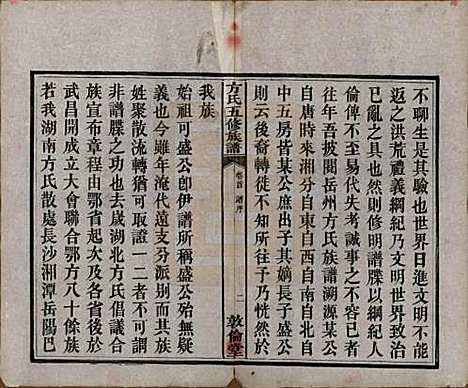 不聊生是其驗也世界日進文明不能
返之洪荒禮義綱紀乃文明世界致治
已亂之具也然則修明譜牒以綱紀人
倫俾不至易代失考誠事之不容不亟
往年吾披閱岳州方氏族譜溯源某公
自唐時來湘分自東自西自南自北自
中五房皆某公庶出子其嫡長子盛公
則云後裔關如余為之撫卷興嗟乃恍然於
方氏五修族譜
卷首 譜序
二
敦倫堂
我族
始祖可盛公卽伊譜所稱盛公殆無疑
義也今雖年湮代遠支分派別而同宗共
姓聚散流轉猶可取證一二者不可謂
非譜牒之功也去歲湖北方氏倡議合
族宣布章程由鄂省以次及於各省於
武昌開成立大會聯合鄂方八十餘族
若我湖南方氏散處長沙湘潭岳陽巴